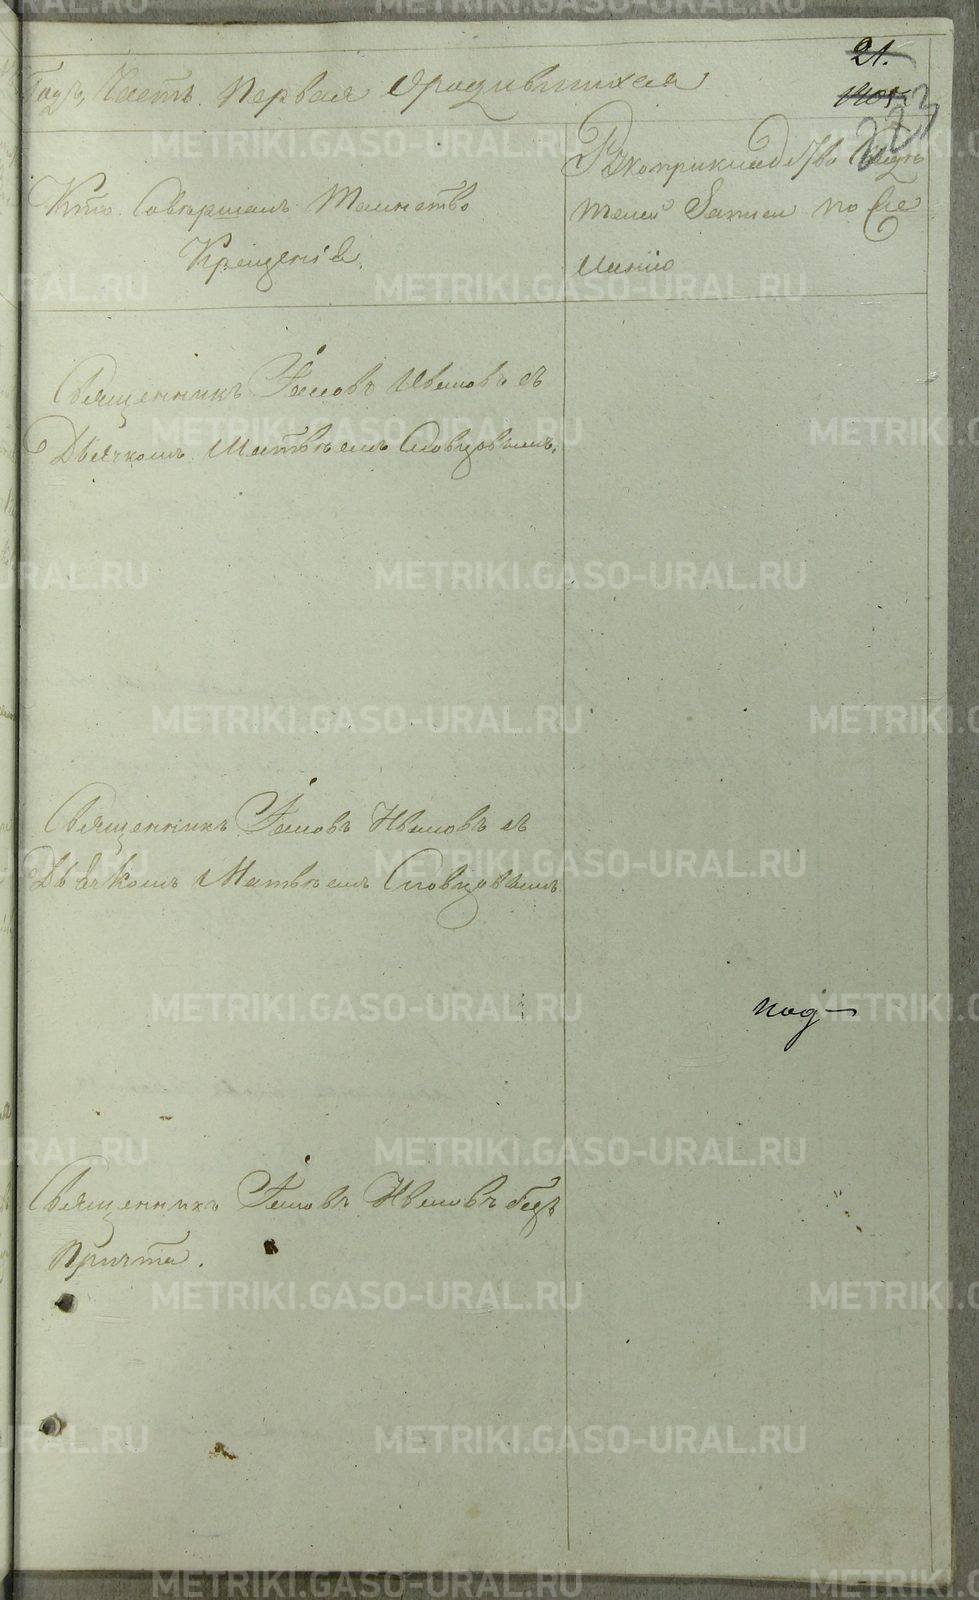 21.
223
Годъ, Часть Первая Ородившихся
Кто Совершалъ Таинство
Крещенія.
Рукоприкладство Свидѣ
телей Записи по Же
ланію
Священникъ Іаковъ Ивановъ съ
Дьячкомъ Матвѣемъ Словцовымъ.
Священникъ Іаковъ Ивановъ съ
Дьячкомъ Матвѣемъ Словцовымъ
под-
Священникъ Іаковъ Ивановъ безъ
Причта.
METRIKI.GASO-URAL.RU